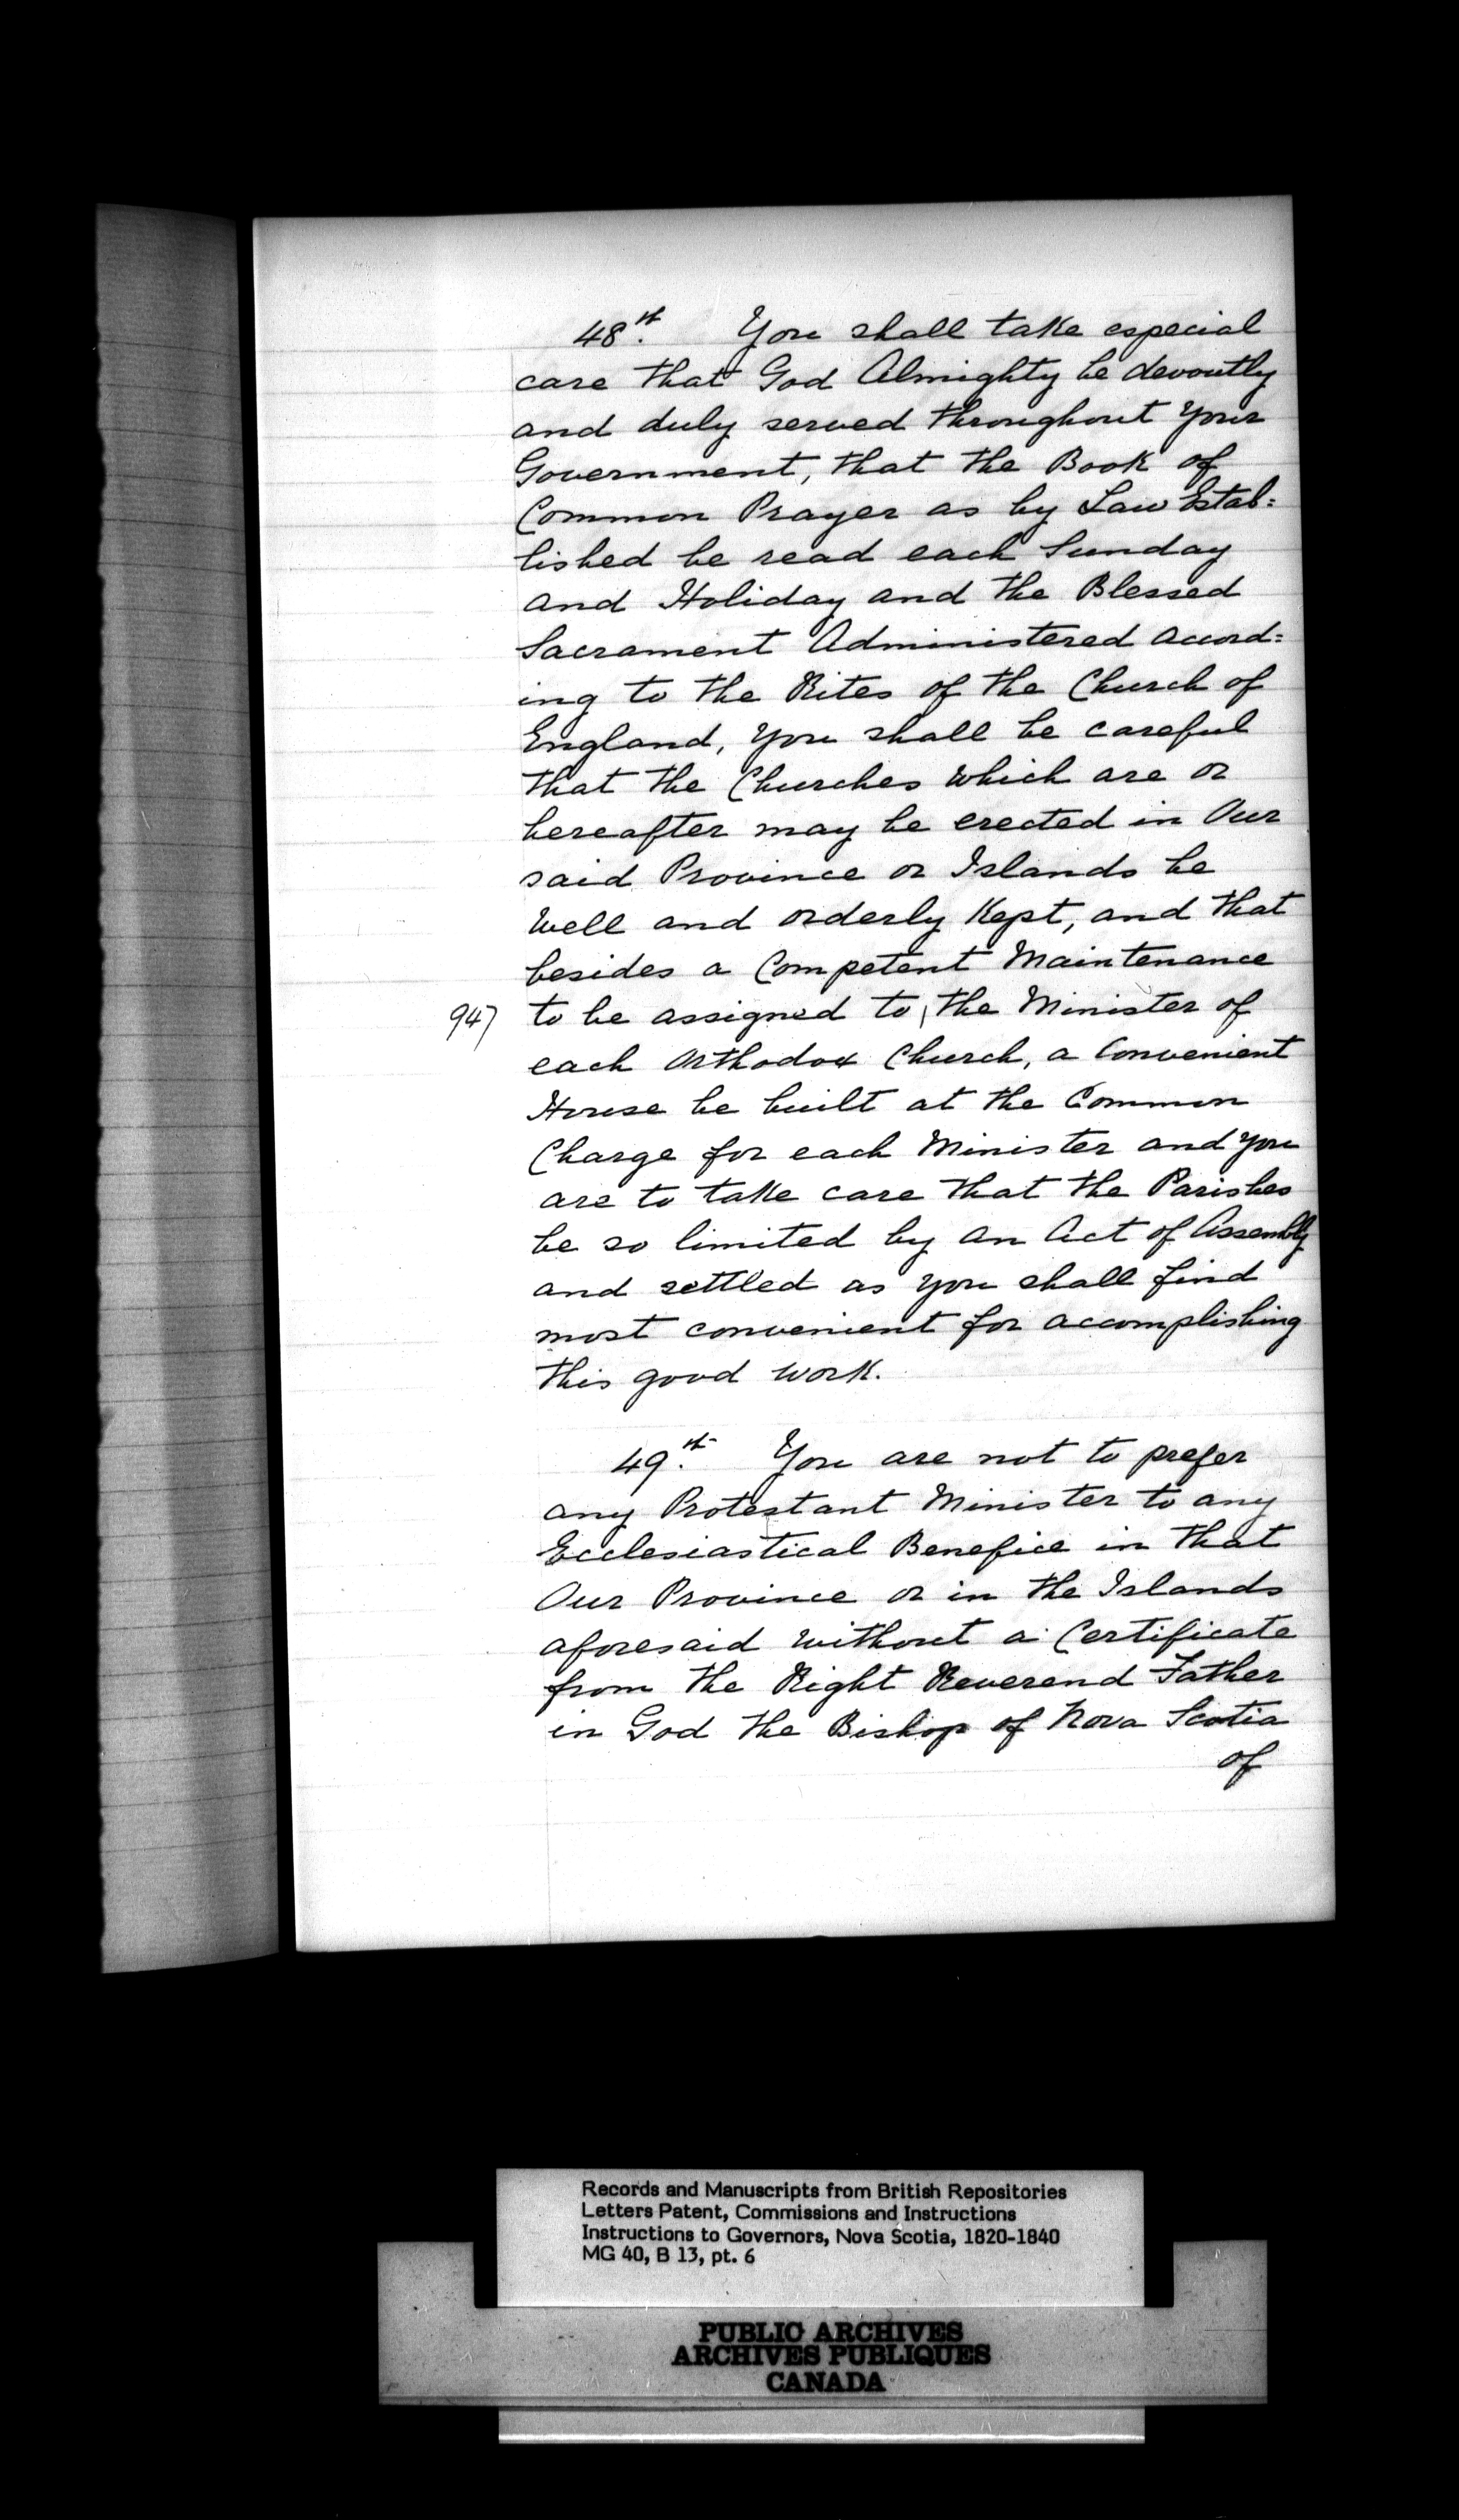 48th. You shall take especial
care that God Almighty be devoutly
and duly served throughout your
Government, that the Book of
Common Prayer as by Law Estab=
lished be read each Sunday
and Holiday and the Blessed
Sacrament Administered accord=
ing to the Rites of the Church of
England, you shall be careful
that the Churches which are or
hereafter may be erected in Our
said Province or Islands be
well and orderly Kept, and that
besides a Competent Maintenance
947 to be assigned to | the Minister of
each Orthodox Church, a Convenient
House be built at the Common
Charge for each Minister and you
are to take care that the Parishes
be so limited by an Act of Assembly
and settled as you shall find
most convenient for accomplishing
this good work.
49th. You are not to prefer
any Protestant Minister to any
Ecclesiastical Benefice in that
Our Province or in the Islands
aforesaid without a Certificate
from the Right Reverend Father
in God the Bishop of Nova Scotia
of
Records and Manuscripts from British Repositories
Letters Patent, Commissions and Instructions
Instructions to Governors, Nova Scotia, 1820-1840
MG 40, B 13, pt. 6
PUBLIC ARCHIVES
ARCHIVES PUBLIQUES
CANADA